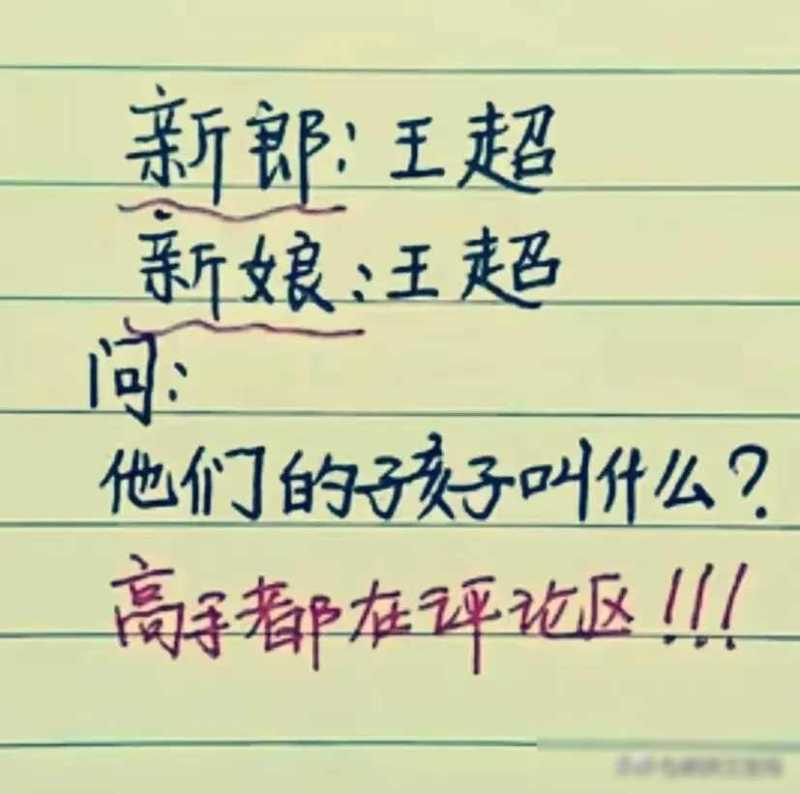 新郎：王超
新娘：王超
问：
他们的孩子叫什么？
高手都在评论区！！！